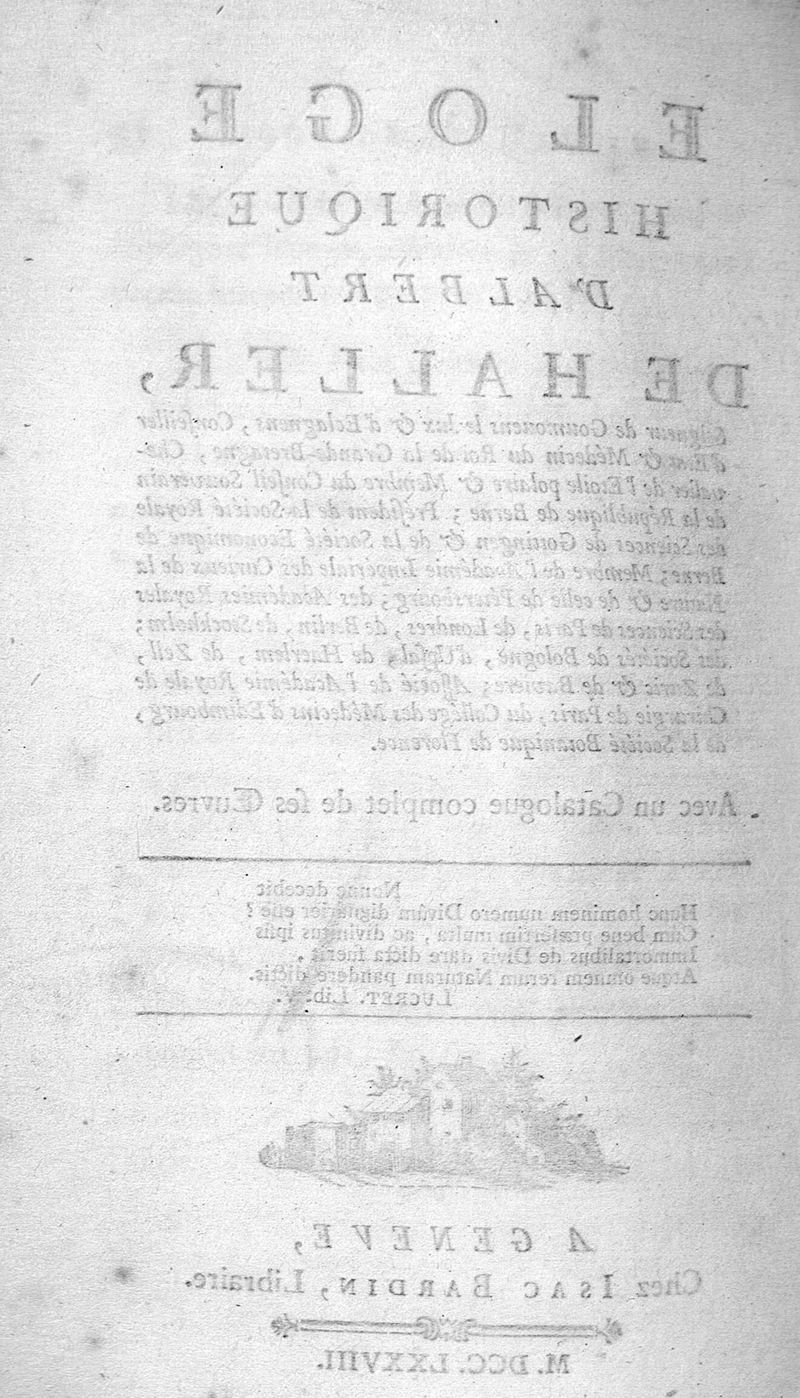 ELOGE
HISTORIQUE
D'ALBERT
DE HALLER,
Seigneur de Goumouens le Jux & d'Eclagnens, Conseiller
d'Etat & Médecin du Roi de la Grande-Bretagne, Che-
valier de l'Etoile polaire & Membre du Conseil Souverain
de la République de Berne; Président de la Société Royale
des Sciences de Gottingen & de la Société Economique de
Berne; Membre de l'Académie Impériale des Curieux de la
Nature & de celle de Pétersbourg; des Académies Royales
des Sciences de Paris, de Londres, de Berlin, de Stockholm;
des Sociétés de Bologne, d'Upsal, de Haerlem, de Zell,
de Zuric & de Baviere; Associé de l'Académie Royale de
Chirurgie de Paris, du Collége des Médecins d'Edimbourg,
de la Société Botanique de Florence.
Avec un Catalogue complet de ses Œuvres.
Nonne decebit
Hunc hominem numero Divûm dignarier esse?
Cùm bene præsertim multa, ac divinitus ipsis
Immortalibus de Divis dare dicta suerit,
Atque omnem rerum Naturam pandere dictis.
LUCRET. Lib. V.
A GENEVE,
Chez ISAC BARDIN, Libraire.
M. DCC. LXXVIII.